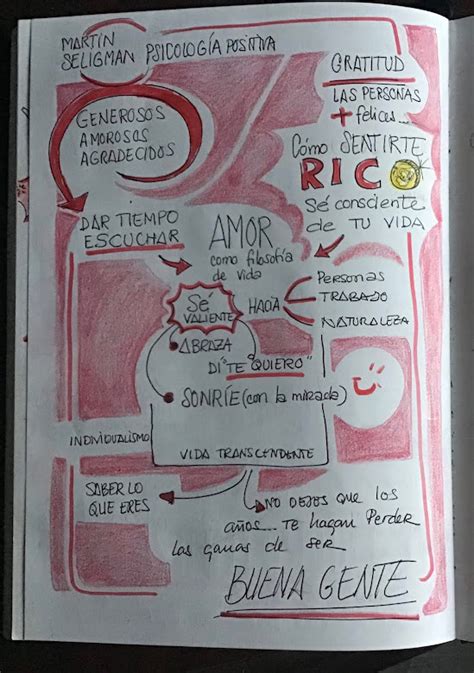 MARTIN
SELIGMAN
PSICOLOGÍA POSITIVA
GRATITUD
LAS PERSONAS
+ felices...
GENEROSOS
AMOROSOS
AGRADECIDOS
Cómo SENTIRTE
RICO
Sé consciente
de TU VIDA
DAR TIEMPO
ESCUCHAR
AMOR
como filosofía
de vida
Sé
VALIENTE
HACIA
Personas
TRABAJO
NATURALEZA
ABRAZA
DI "TE QUIERO"
SONRÍE (con la mirada)
INDIVIDUALISMO
VIDA TRANSCENDENTE
SABER LO
QUE ERES
NO DEJES QUE los
años... Te hagan Perder
las ganas de SER
BUENA GENTE